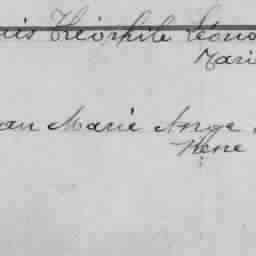 Théophile Léon
Mari
an Marie Ange
Rene